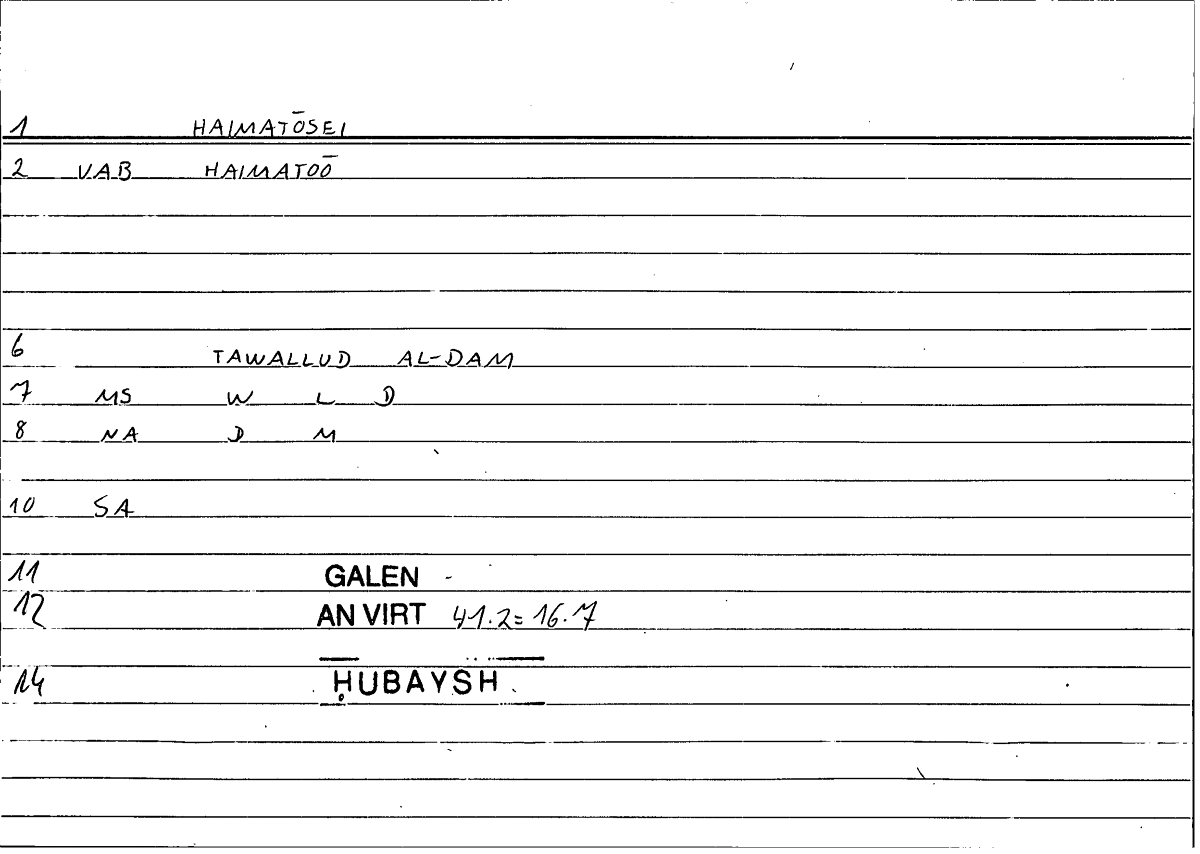 1 HAIMATŌSEI
2 VAB HAIMATOŌ
6 TAWALLUD AL-DAM
7 MS W L D
8 NA D M
10 SA
11 GALEN -
12 AN VIRT 41.2=16.17
14 ḤUBAYSH